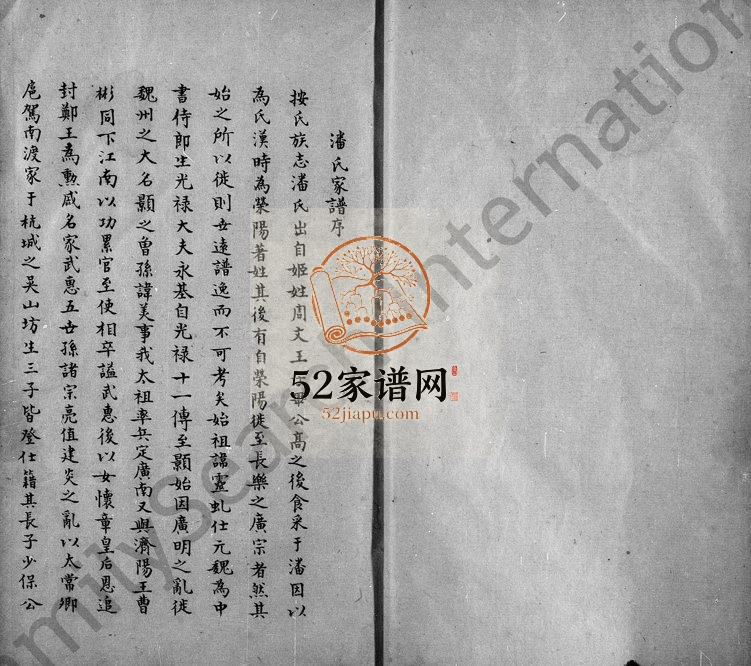 潘氏家譜序
按氏族志潘氏出自姬姓周文王子畢公高之後食采于潘因以
為氏漢時為滎陽著姓其後有自滎陽徙至長樂之廣宗者然其
始之所以徙則世遠譜逸而不可考矣始祖諱靈虬仕元魏為中
書侍郎生光禄大夫永基自光禄十一傳至顯始因廣明之亂徙
魏州之大名顯之曾孫諱美事我太祖率兵定廣南又與濟陽王曹
彬同下江南以功累官至使相卒謚武惠後以女懷章皇后恩追
封鄭王為勲戚名家武惠五世孫諸宗亮值建炎之亂以太常卿
扈駕南渡家于杭城之吴山坊生三子皆登仕籍其長子少保公
52家谱网
52jiapu.com
milySearch International